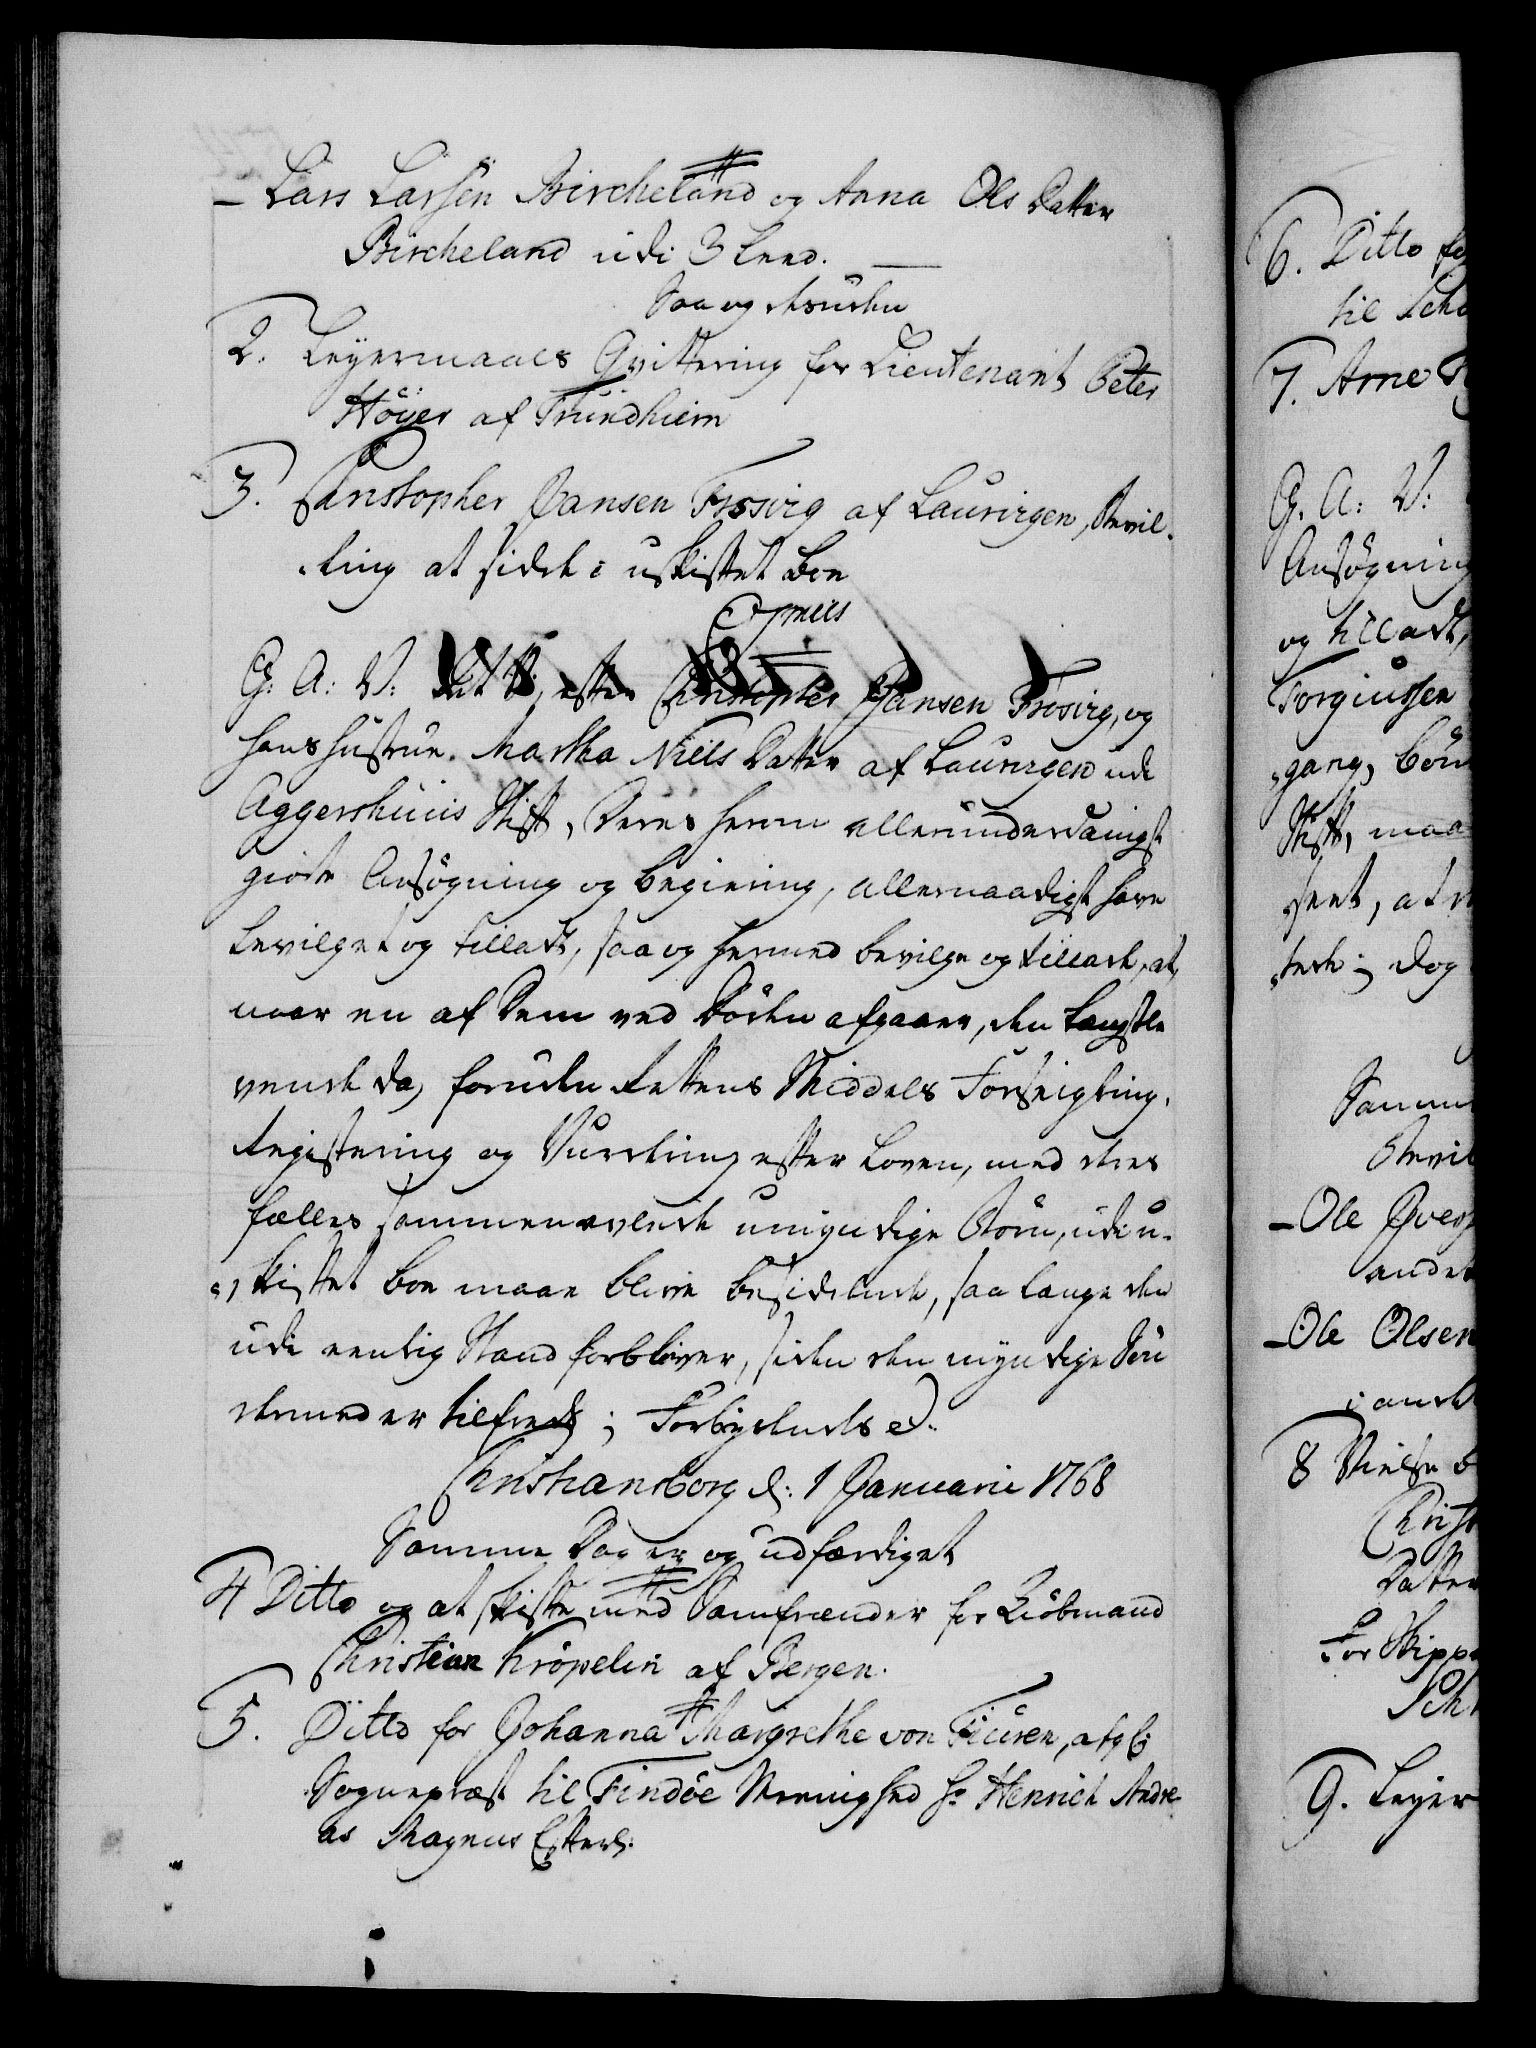 – Lars Larsen Bircheland og Anna Ols Datter
Bircheland udi 3 Leed.
Saa og desuden
2. Leyermaals Qvittering for Lieutenant Peter
Höyer af Trundhiem
3. Christopher Jansen Frosvig af Laurvigen, Bevil-
ling at sidde i uskiftet Boe
Copie
G: A: V: at Vi, efter Christopher Jansen Frosvig, og
hans Hustrue Martha Niels Datter af Laurvigen udi
Aggershuus Stift, deres herom allerunderdanigst
giorte Ansögning og begiering, allernaadigst have
bevilget og tilladt, saa og hermed bevilge og tillade, at,
naar en af dem ved Döden afgaaer, den længstle
vende da, foruden Rettens Middels Forseigling,
Registering og Vurdering efter Loven, med deres
fælles sammenavlede umyndige Börn, udi u-
skiftet boe maae blive besiddende, saa længe den
udi eenlig Stand forbliver, siden den myndige Sön
dermed er tilfreds; Forbydendes e.
Christiansborg d: 1 Januarii 1768
Samme Dag er og udfærdiget
4 Ditto og at skifte med Samfrænder for Kiöbmand
Christian Kröpelin af Bergen.
5. Ditto for Johanna Margrethe von Fieuren, afg:
Sognepræst til Findöe Menighed Hr Henrich Andre
as Magnus Efterl:
6. Ditto
til
7. Arne
G. A: V:
Ansögning
og tilladt,
Torgiussen
gang, börn
Stift, maa
at
dog
Samme
Bevil
– Ole
andet
– Ole Olsen
i andet
8
Christ
Datter
for Skipp
Sch
9. Leyer